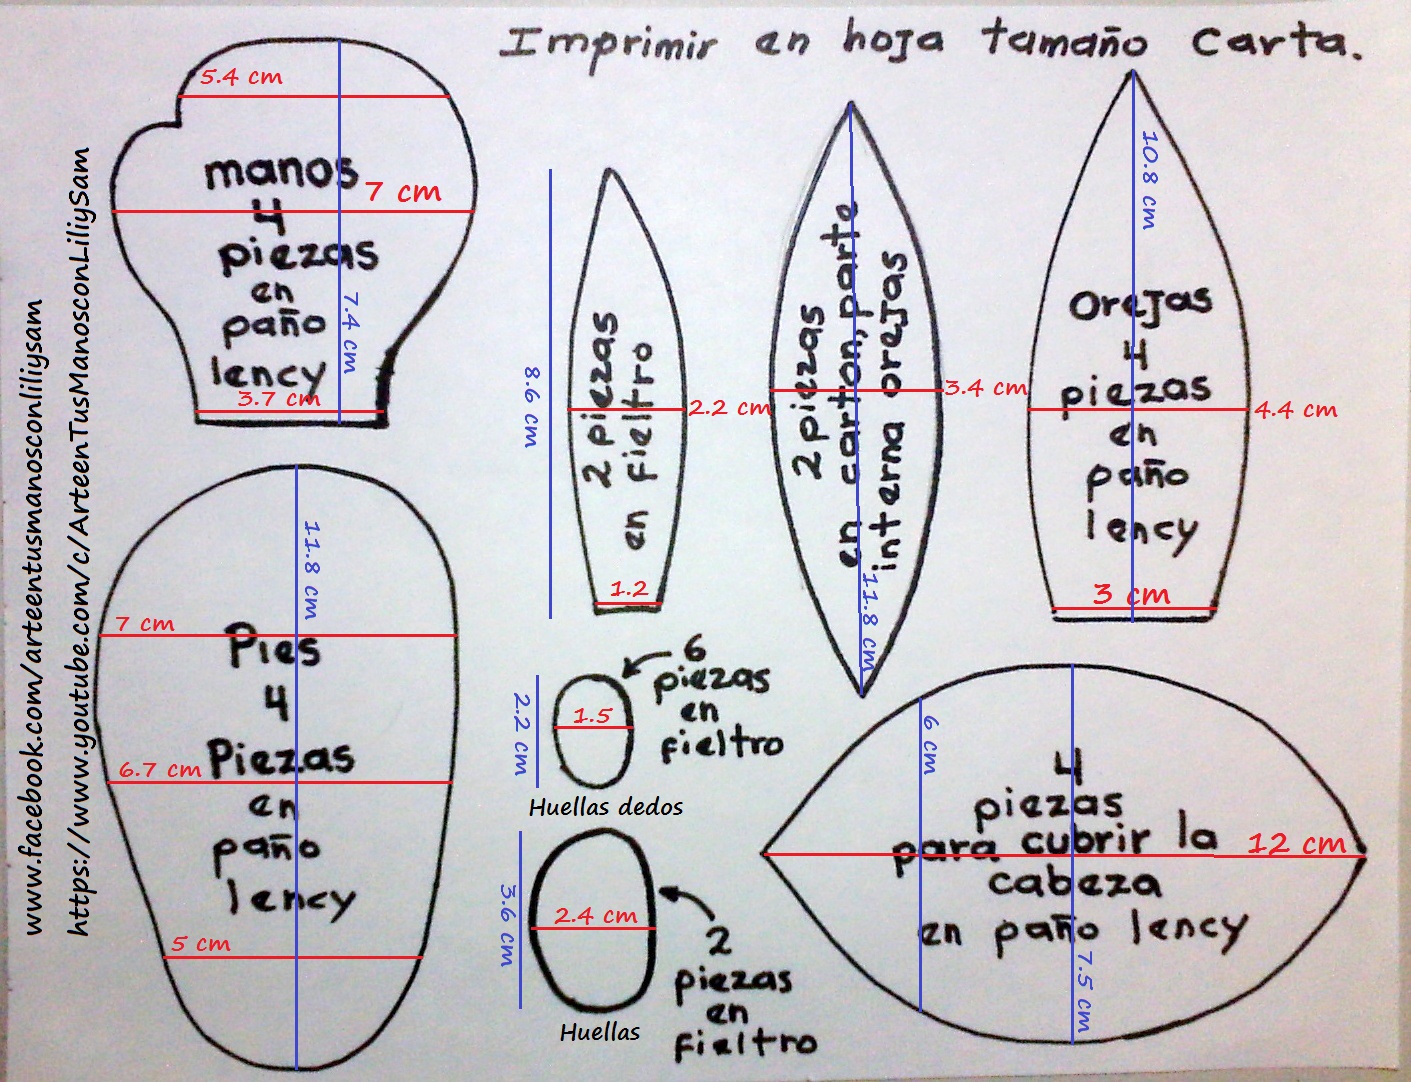 Imprimir en hoja tamaño carta.
www.facebook.com/arteentusmanosconliliysam
https://www.youtube.com/c/ArteenTusManosconLiliySam
5.4 cm
manos
7 cm
4
piezas
en
paño
7.4 cm
lency
3.7 cm
11.8 cm
7 cm
Pies
4
Piezas
6.7 cm
en
paño
lency
5 cm
8.6 cm
2 piezas
en fieltro
2.2 cm
1.2
2 piezas
en carton, parte
interna orejas
3.4 cm
11.8 cm
10.8 cm
Orejas
4
piezas
4.4 cm
en
paño
lency
3 cm
6
piezas
en
fieltro
2.2 cm
1.5
Huellas dedos
3.6 cm
2.4 cm
2
piezas
en
fieltro
Huellas
6 cm
4
piezas
para cubrir la
12 cm
cabeza
en paño lency
7.5 cm